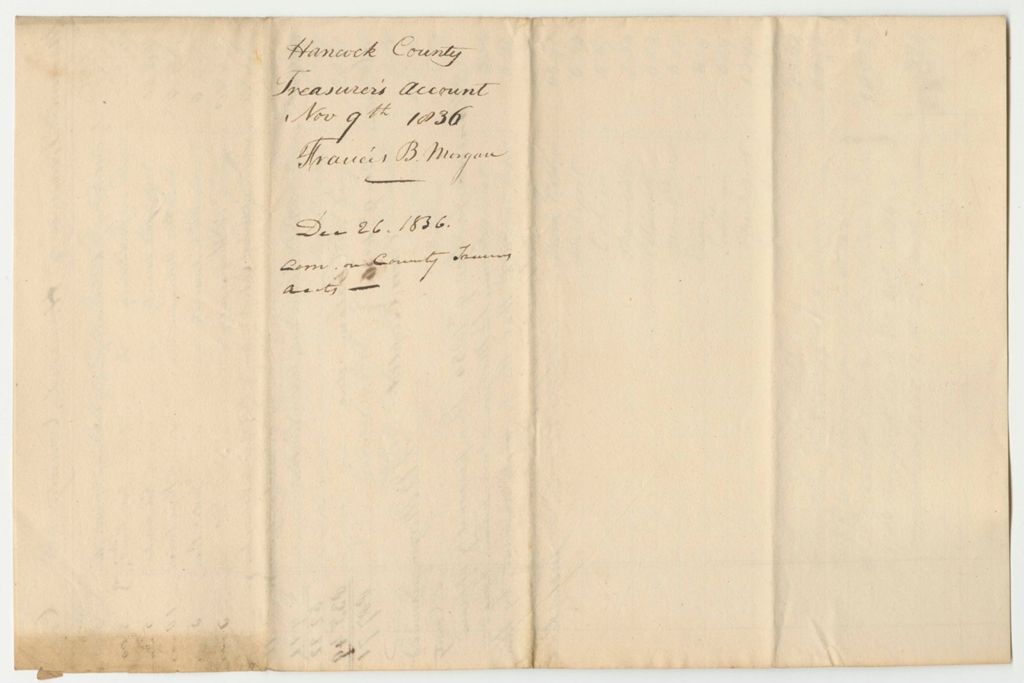 Hancock County
Treasurer's account
Nov 9th 1836
Francis B. Morgan
Dec 26. 1836.
Com. on County Treas
accts